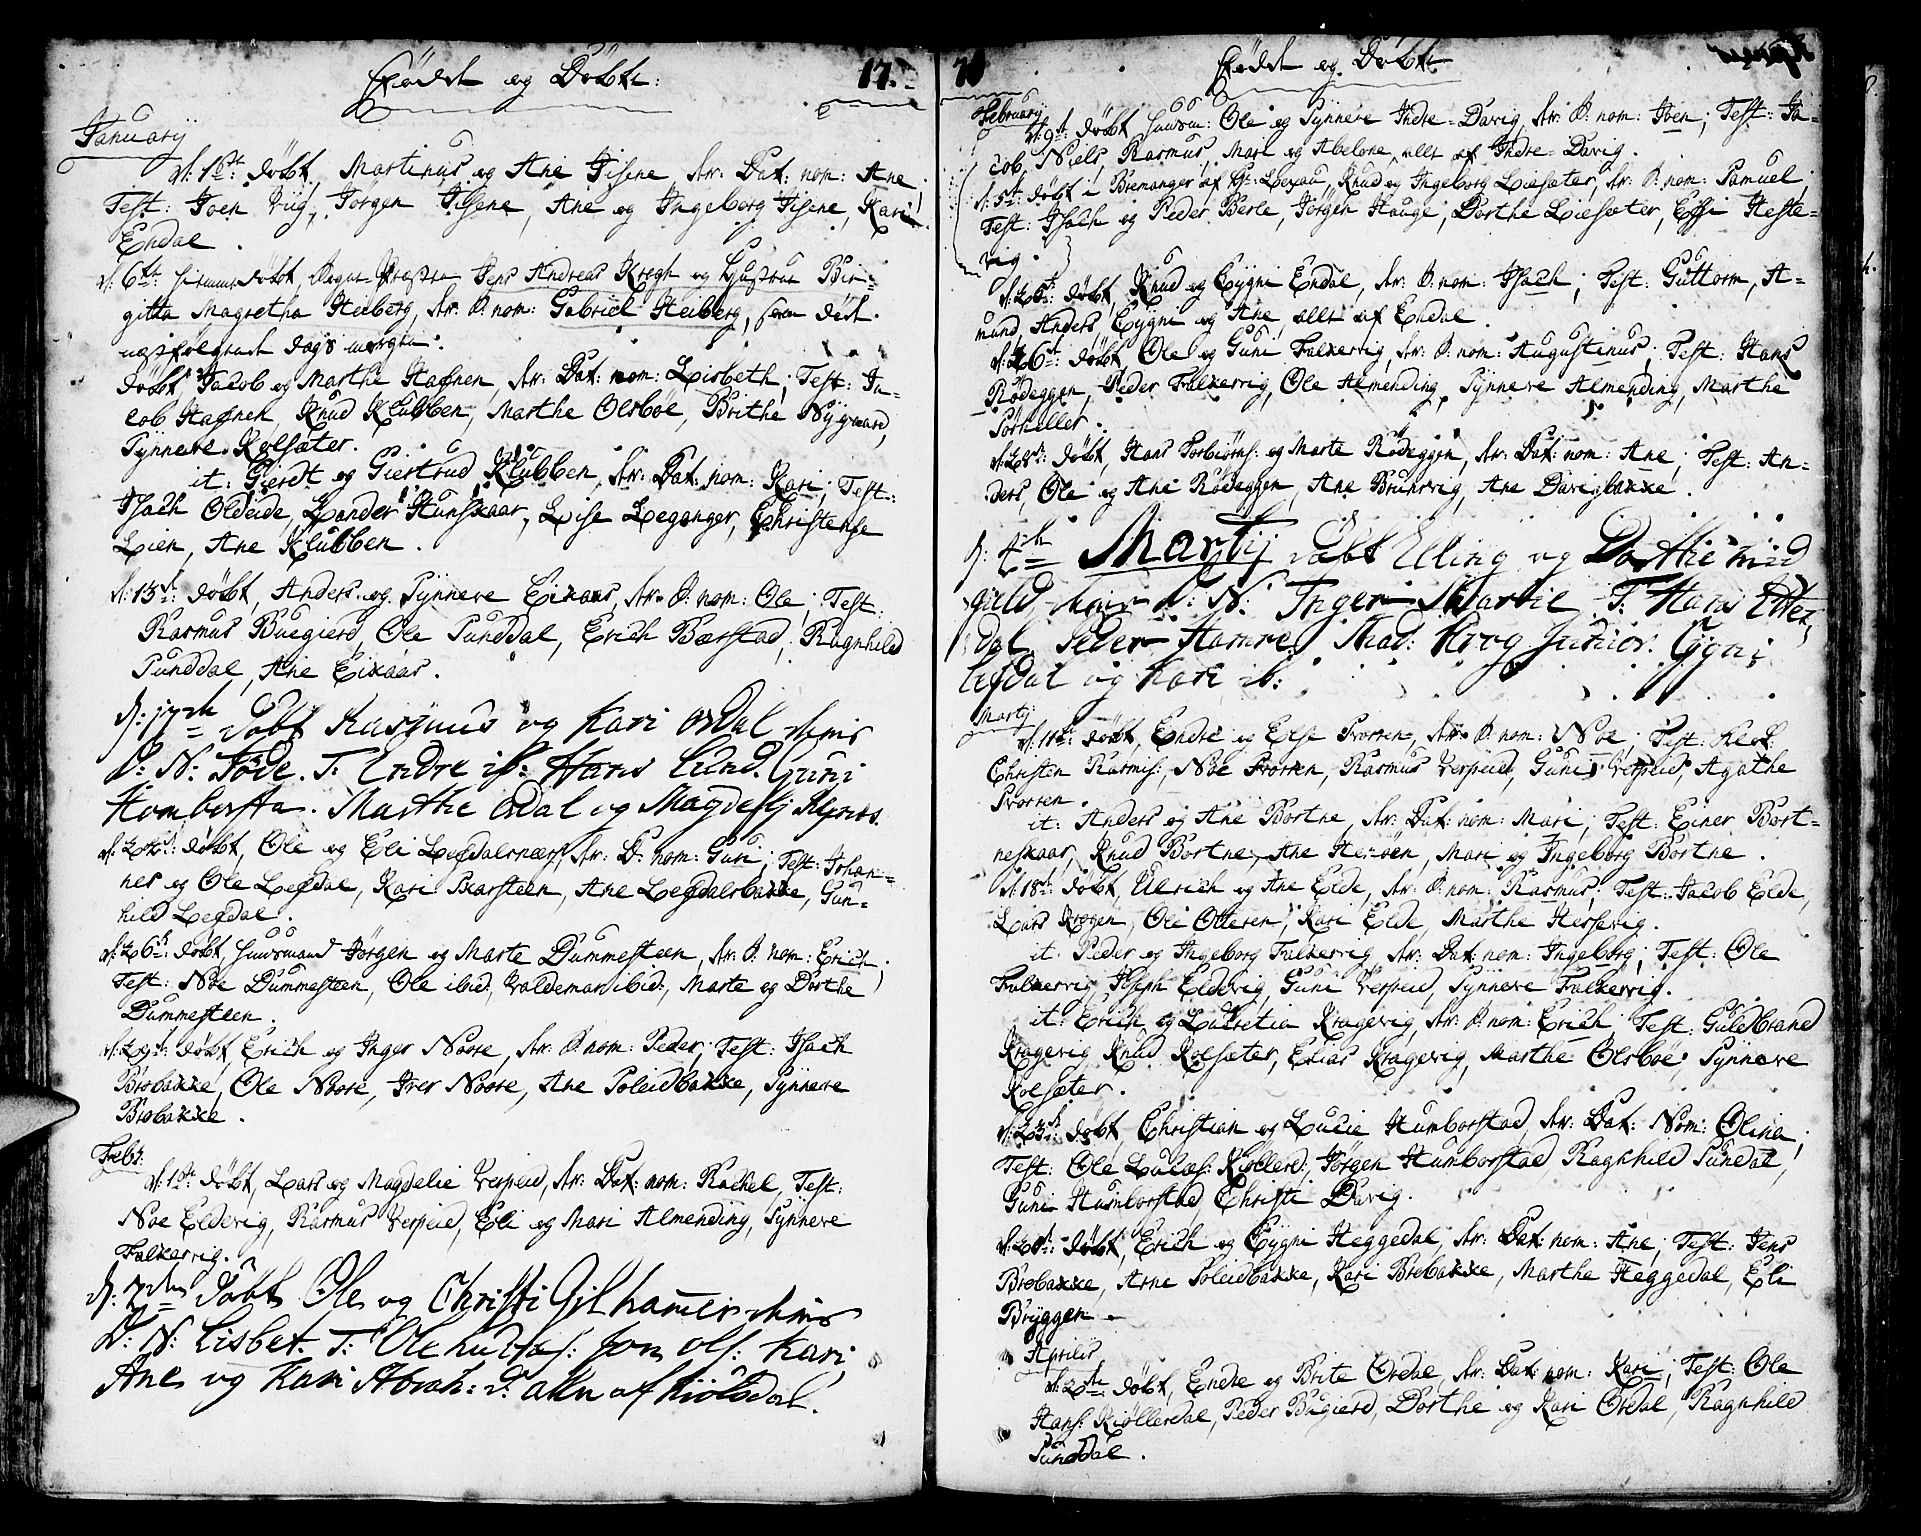 Fødde og Døbte: 17.
January
d: 1ste døbt, Martinus og Ane Jisene, der: Dat: nom: Ane;
Test: Joen Viig, Jørgen Jisene, Ane og Ingeborg Jisene, Kari
Endal.
d. 6te hiemmedøbt, Andreas Krogh og Hustrue Bir-
gitta Magretha Heiberg, der: S: nom: Gabriel Heiberg, som døde
næstfølgende dags morgen.
døbt Jacob og Marthe Hafnen, der: Dat: nom: Lisbeth; Test: Ja-
cob Hafnen, Knud Klubben, Marthe Olsbøe, Brithe Nygaard,
Synneve Rolsæter.
it: Gierdt og Giertrud Klubben, der: Dat: nom: Kari; Test:
Isach Oldeide, Lander Hunskaar, Lise Leganger, Christense
Lien, Ane Klubben.
d: 13de: døbt, Anders og Synneve Eikaas, der: S: nom: Ole; Test:
Rasmus Buegierd, Ole Sunddal, Erich Bærstad, Ragnhild
Sunddal, Ane Eikaas.
d: 17de døbt Rasmus og Kari Ordal deris
S: N: Jøde. T: Endre ib: Hans Lund. Guni
Homborsta. Marthe Odal og Magdeli
d: 22de: døbt, Ole og Eli Lefdalsnæs, der: D: nom: Guri; Test: Johan-
nes og Ole Lefdal, Kari Skarsteen, Ane Lefdalsbakke, Gun-
hild Lefdal.
d: 26de: døbt, Huusmand Jørgen og Marte Dummesteen, der: S: nom: Erich;
Test: Noe Dummesteen, Ole ibid:, Valdemar ibid:, Marte og Dorthe
Dummesteen.
d: 29de: døbt, Erich og Inger Noore, der: S: nom: Peder; Test: Isach
Brobakke, Ole Noore, Iver Noore, Ane Soleidbakke, Synneve
Brobakke.
Febr:
d: 1ste døbt, Lars og Magdelie Verpeid, der: Dat: nom: Rachel, Test:
Noe Eldevig, Rasmus Verpeid, Eli og Mari Almending, Synneve
Falkevig.
d: 7de døbt Ole og Christi Gilhamer deris
D: N: Lisbet. T: Ole Jon Ols: Kari,
Ane og Kari Abrah: d: allen af Kiølsdal.
76 Fødde og Døbte
February
d: 9de: døbt, Huusm: Ole og Synneve Indre-Davig, der: S: nom: Joen; Test: Ja-
cob, Niels, Rasmus, Mari og Abelone, alle af Indre-Davig.
d: 5te: døbt i Bremanger af Hr: Lexau, Knud og Ingeborg Liesæter, der: S: nom: Samuel;
Test: Isach og Peder Berle, Jørgen Hauge, Dorthe Liesæter, Essi Heste-
vig.
d: 26de: døbt, Knud og Eygni Endal, der: S: nom: Isach; Test: Guttorm, A-
mund, Anders, Eygni og Ane, alle af Endal.
d: 26de: døbt, Ole og Guni Falkevig, der: S: nom: Augustinus; Test: Hans
Rødeggen, Peder Falkevig, Ole Almending, Synneve Almending, Marthe
Sørheller.
d: 28de: døbt, Hans Torbiørns: og Marte Rødeggen, der: Dat: nom: Ane; Test: An-
ders, Ole og Ane Rødeggen, Ane Brunsvig, Ane Davigbakke.
d: 4de Martij døbt Elling og Dorthe Mid
gield deris D: N: Inger Marie T: Hans Etter
dal, Peder Hamre, Mad: Krog Junior. Gyni
lefdal og Kari ib:
Martij
d: 11te: døbt, Endre og Else Prosten, der: S: nom: Noe; Test: Klok:
Christen Rasmus:, Noe Prosten, Rasmus Verpeid, Guni Verpeid, Agathe
Prosten.
it: Anders og Ane Bortne, der: Dat: nom: Mari; Test: Einer Bort-
neskaar, Knud Bortne, Ane Henøen, Mari og Ingeborg Bortne.
d: 18de: døbt, Ulrich og Ane Elde, der: S: nom: Rasmus; Test: Jacob Elde,
Lars Krogen, Ole Otteren, Kari Elde, Marthe Hessevig.
it: Peder og Ingeborg Falkevig, der: Dat: nom: Ingeborg; Test: Ole
Falkevig, Joseph Eldevig, Guni Verpeid, Synneve Falkevig.
it: Erich og Lucretia Kragevig, der: S: nom: Erich; Test: Guldbrand
Kragevig, Knud Rolsæter, Elias Kragevig, Marthe Olsbøe, Synneve
Rolsæter.
d: 23de: døbt, Christian og Lucie Humborstad, der: Dat: Nom: Olina;
Test: Ole Lucas: Kiøllerd:, Jørgen Humborstad, Ragnhild Sundal,
Guni Humborstad, Christi Davig.
døbt, Erich og Eygni Heggedal, der: Dat: nom: Ane; Test: Jens
Brobakke, Arne Soleidbakke, Kari Brobakke, Marthe Heggedal, Eli
Bryggen.
Aprilis
d: 2den døbt, Endre og Brite Ordal, der: Dat: nom: Kari; Test: Ole
Hans: Kiøllerdal, Peder Bugierd, Dorthe og Kari Ordal, Ragnhild
Sunddal.